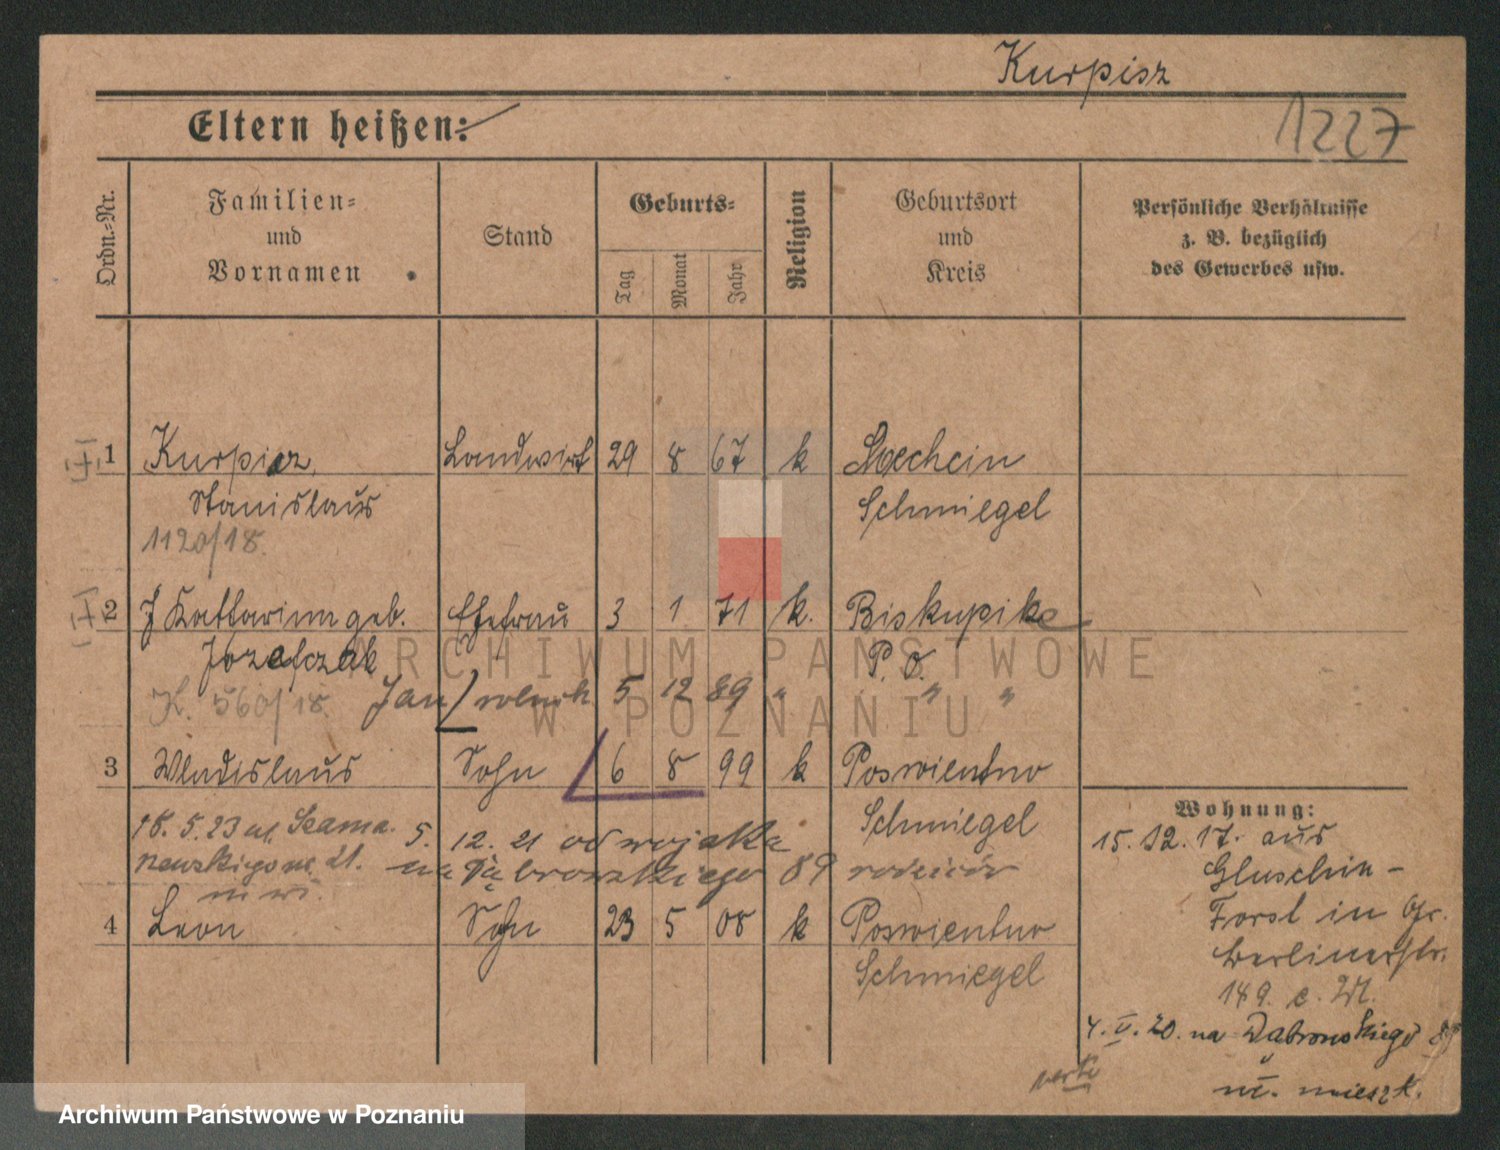 Kurpisz
1227
Eltern heißen:
Ordn.-Nr.
Familien- und Vornamen
Stand
Geburts-
Tag
Monat
Jahr
Religion
Geburtsort und Kreis
Persönliche Verhältnisse z. B. bezüglich des Gewerbes usw.
1 Kurpisz, Landwirt 29 8 67 k
Stanislaus Schmiegel
1120/18.
2 geb. Ehefrau 3 1 71 k. Biskupice
Józefczak P. O.
K. 560/18. Jan rolnik 5 12 89 " " "
3 Wladislaus Sohn 6 8 99 k Poswientno
Schmiegel
18. 5. 23 5. 12. 21 od wojska
na Dąbrowskiego 89 rodziców
4 Leon Sohn 23 5 08 k Poswientno
Schmiegel
Wohnung:
15. 12. 17. aus
Gluschin-
Forst in Gr.
Berlinerstr.
149.
4. V. 20. na Dabrowskiego 89
m. mieszk.
verte
ARCHIWUM PAŃSTWOWE
W POZNANIU
Archiwum Państwowe w Poznaniu